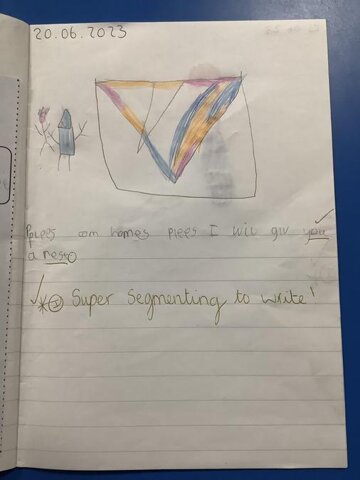 20.06.2023
plees com homes plees I will giv you
a ress
Super Segmenting to write!